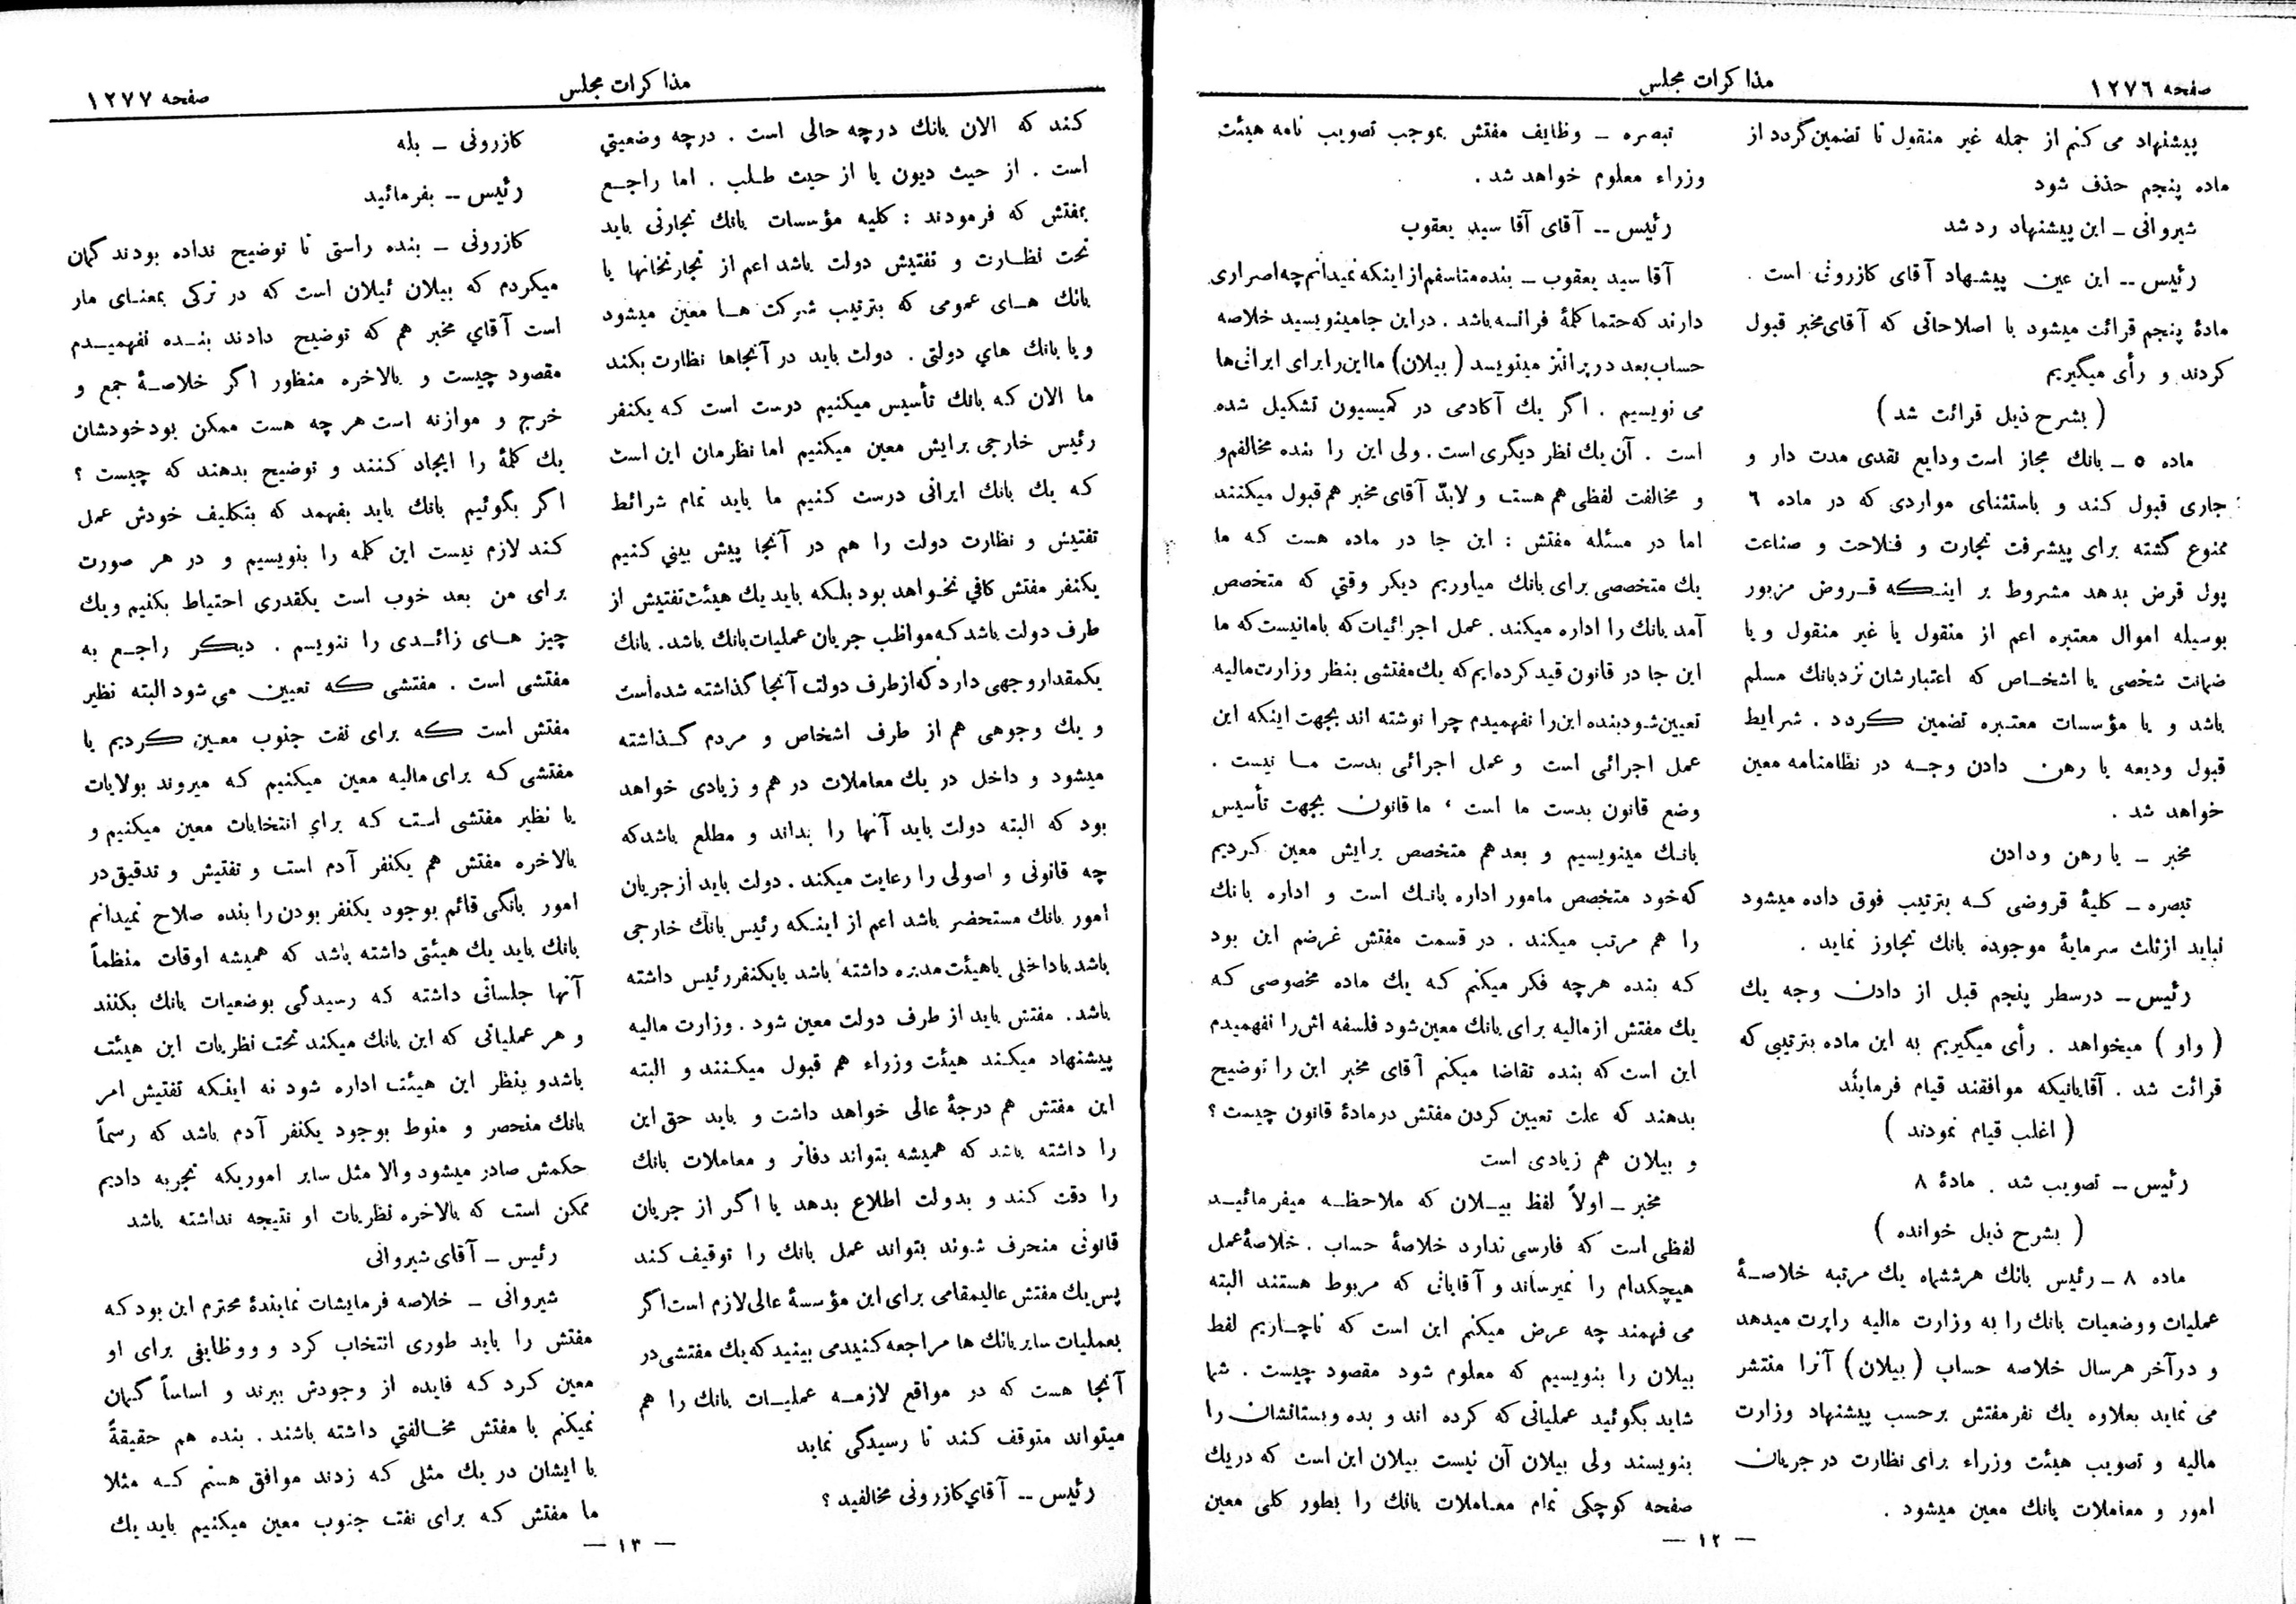 صفحه ١٢٧٦
مذاکرات مجلس
پیشنهاد می کنم از جمله غیر منقول تا تضمین گردد از
ماده پنجم حذف شود
شیروانی ــ این پیشنهاد رد شد
رئیس ــ این عین پیشنهاد آقای کازرونی است .
مادۀ پنجم قرائت میشود با اصلاحاتی که آقای مخبر قبول
کردند و رأی میگیریم
( بشرح ذیل قرائت شد )
ماده ٥ ــ بانك مجاز است ودایع نقدی مدت دار و
جاری قبول کند و باستثنای مواردی که در ماده ٦
ممنوع گشته برای پیشرفت تجارت و فلاحت و صناعت
پول قرض بدهد مشروط بر اینکه قروض مزبور
بوسیله اموال معتبره اعم از منقول یا غیر منقول و یا
ضمانت شخصی یا اشخاص که اعتبارشان نزد بانك مسلم
باشد و یا مؤسسات معتبره تضمین گردد . شرایط
قبول ودیعه یا رهن دادن وجه در نظامنامه معین
خواهد شد .
مخبر ــ یا رهن و دادن
تبصره ــ کلیۀ قروضی که بترتیب فوق داده میشود
نباید از ثلث سرمایۀ موجوده بانك تجاوز نماید .
رئیس ــ در سطر پنجم قبل از دادن وجه یك
( واو ) میخواهد . رأی میگیریم به این ماده بترتیبی که
قرائت شد . آقایانیکه موافقند قیام فرمایند
( اغلب قیام نمودند )
رئیس ــ تصویب شد . مادۀ ٨
( بشرح ذیل خوانده )
ماده ٨ ــ رئیس بانك هر ششماه یك مرتبه خلاصۀ
عملیات و وضعیات بانك را به وزارت مالیه راپرت میدهد
و در آخر هر سال خلاصه حساب ( بیلان ) آنرا منتشر
می نماید بعلاوه یك نفر مفتش بر حسب پیشنهاد وزارت
مالیه و تصویب هیئت وزراء برای نظارت در جریان
امور و معاملات بانك معین میشود .
تبصره ــ وظایف مفتش بموجب تصویب نامه هیئت
وزراء معلوم خواهد شد .
رئیس ــ آقای آقا سید یعقوب
آقا سید یعقوب ــ بنده متاسفم از اینکه نمیدانم چه اصراری
دارند که حتما کلمۀ فرانسه باشد . در این جا مینویسید خلاصه
حساب بعد در پرانتز مینویسد ( بیلان ) ما این را برای ایرانی ها
می نویسیم . اگر یك آکادمی در کمیسیون تشکیل شده
است . آن یك نظر دیگری است . ولی این را بنده مخالفم و
و مخالفت لفظی هم هست و لابدّ آقای مخبر هم قبول میکنند
اما در مسئله مفتش : این جا در ماده هست که ما
یك متخصصی برای بانك میاوریم دیگر وقتي که متخصص
آمد بانك را اداره میکند . عمل اجرائیات که با ما نیست که ما
این جا در قانون قید کرده ایم که یك مفتشی بنظر وزارت مالیه
تعیین شود بنده این را نفهمیدم چرا نوشته اند بجهت اینکه این
عمل اجرائی است و عمل اجرائی بدست ما نیست .
وضع قانون بدست ما است ، ما قانون بجهت تأسیس
بانك مینویسیم و بعد هم متخصص برایش معین کردیم
که خود متخصص مامور اداره بانك است و اداره بانك
را هم مرتب میکند . در قسمت مفتش غرضم این بود
که بنده هر چه فکر میکنم که یك ماده مخصوصی که
یك مفتش از مالیه برای بانك معین شود فلسفه اش را نفهمیدم
این است که بنده تقاضا میکنم آقای مخبر این را توضیح
بدهند که علت تعیین کردن مفتش در مادۀ قانون چیست ؟
و بیلان هم زیادی است
مخبر ــ اولاً لفظ بیلان که ملاحظه میفرمائید
لفظی است که فارسی ندارد خلاصۀ حساب . خلاصۀ عمل
هیچکدام را نمیرساند و آقایانی که مربوط هستند البته
می فهمند چه عرض میکنم این است که ناچاریم لفط
بیلان را بنویسیم که معلوم شود مقصود چیست . شما
شاید بگوئید عملیاتی که کرده اند و بده و بستانشان را
بنویسند ولی بیلان آن نیست بیلان این است که در یك
صفحه کوچکی تمام معاملات بانك را بطور کلی معین
ــ ١٢ ــ
مذاکرات مجلس
صفحه ١٢٧٧
کند که الان بانك در چه حالی است . در چه وضعیتي
است . از حیث دیون یا از حیث طلب . اما راجع
بمفتش که فرمودند : کلیه مؤسسات بانك تجارتی باید
تحت نظارت و تفتیش دولت باشد اعم از تجارتخانها یا
بانك های عمومی که بترتیب شرکت ها معین میشود
و یا بانك هاي دولتی . دولت باید در آنجاها نظارت بکند
ما الان که بانك تأسیس میکنیم درست است که یکنفر
رئیس خارجی برایش معین میکنیم اما نظرمان این است
که یك بانك ایرانی درست کنیم ما باید تمام شرائط
تفتیش و نظارت دولت را هم در آنجا پیش بیني کنیم
یکنفر مفتش کافي نخواهد بود بلکه باید یك هیئت تفتیش از
طرف دولت باشد که مواظب جریان عملیات بانك باشد . بانك
یکمقدار وجهی دارد که از طرف دولت آنجا گذاشته شده است
و یك وجوهی هم از طرف اشخاص و مردم گذاشته
میشود و داخل در یك معاملات در هم و زیادی خواهد
بود که البته دولت باید آنها را بداند و مطلع باشد که
چه قانونی و اصولی را رعایت میکند . دولت باید از جریان
امور بانك مستحضر باشد اعم از اینکه رئیس بانك خارجی
باشد یا داخلی یا هیئت مدیره داشته باشد یا یکنفر رئیس داشته
باشد . مفتش باید از طرف دولت معین شود . وزارت مالیه
پیشنهاد میکند هیئت وزراء هم قبول میکنند و البته
این مفتش هم درجۀ عالی خواهد داشت و باید حق این
را داشته باشد که همیشه بتواند دفاتر و معاملات بانك
را دقت کند و بدولت اطلاع بدهد یا اگر از جریان
قانونی منحرف شوند بتواند عمل بانك را توقیف کند
پس یك مفتش عالیمقامی برای این مؤسسۀ عالی لازم است اگر
بعملیات سایر بانك ها مراجعه کنید می بینید که یك مفتشی در
آنجا هست که در مواقع لازمه عملیات بانك را هم
میتواند متوقف کند تا رسیدگی نماید
رئیس ــ آقاي کازرونی مخالفید ؟
کازرونی ــ بله
رئیس ــ بفرمائید
کازرونی ــ بنده راستی تا توضیح نداده بودند گمان
میکردم که بیلان ئیلان است که در ترکی بمعنای مار
است آقاي مخبر هم که توضیح دادند بنده نفهمیدم
مقصود چیست و بالاخره منظور اگر خلاصۀ جمع و
خرج و موازنه است هر چه هست ممکن بود خودشان
یك کلمۀ را ایجاد کنند و توضیح بدهند که چیست ؟
اگر بگوئیم بانك باید بفهمد که بتکلیف خودش عمل
کند لازم نیست این کلمه را بنویسیم و در هر صورت
برای من بعد خوب است یکقدری احتیاط بکنیم و یك
چیز های زائدی را ننویسم . دیگر راجع به
مفتشی است . مفتشی که تعیین می شود البته نظیر
مفتش است که برای نفت جنوب معین کردیم یا
مفتشی که برای مالیه معین میکنیم که میروند بولایات
یا نظیر مفتشی است که براي انتخابات معین میکنیم و
بالاخره مفتش هم یکنفر آدم است و تفتیش و تدقیق در
امور بانکی قائم بوجود یکنفر بودن را بنده صلاح نمیدانم
بانك باید یك هیئتی داشته باشد که همیشه اوقات منظماً
آنها جلساتی داشته که رسیدگی بوضعیات بانك بکنند
و هر عملیاتی که این بانك میکند تحت نظریات این هیئت
باشد و بنظر این هیئت اداره شود نه اینکه تفتیش امر
بانك منحصر و منوط بوجود یکنفر آدم باشد که رسماً
حکمش صادر میشود والا مثل سایر اموریکه تجربه دادیم
ممکن است که بالاخره نظریات او نتیجه نداشته باشد
رئیس ــ آقای شیروانی
شیروانی ــ خلاصه فرمایشات نمایندۀ محترم این بود که
مفتش را باید طوری انتخاب کرد و ووظایفی برای او
معین کرد که فایده از وجودش ببرند و اساساً گمان
نمیکنم با مفتش مخالفتي داشته باشند . بنده هم حقیقةً
با ایشان در یك مثلی که زدند موافق هستم که مثلا
ما مفتش که برای نفت جنوب معین میکنیم باید یك
ــ ١٣ ــ